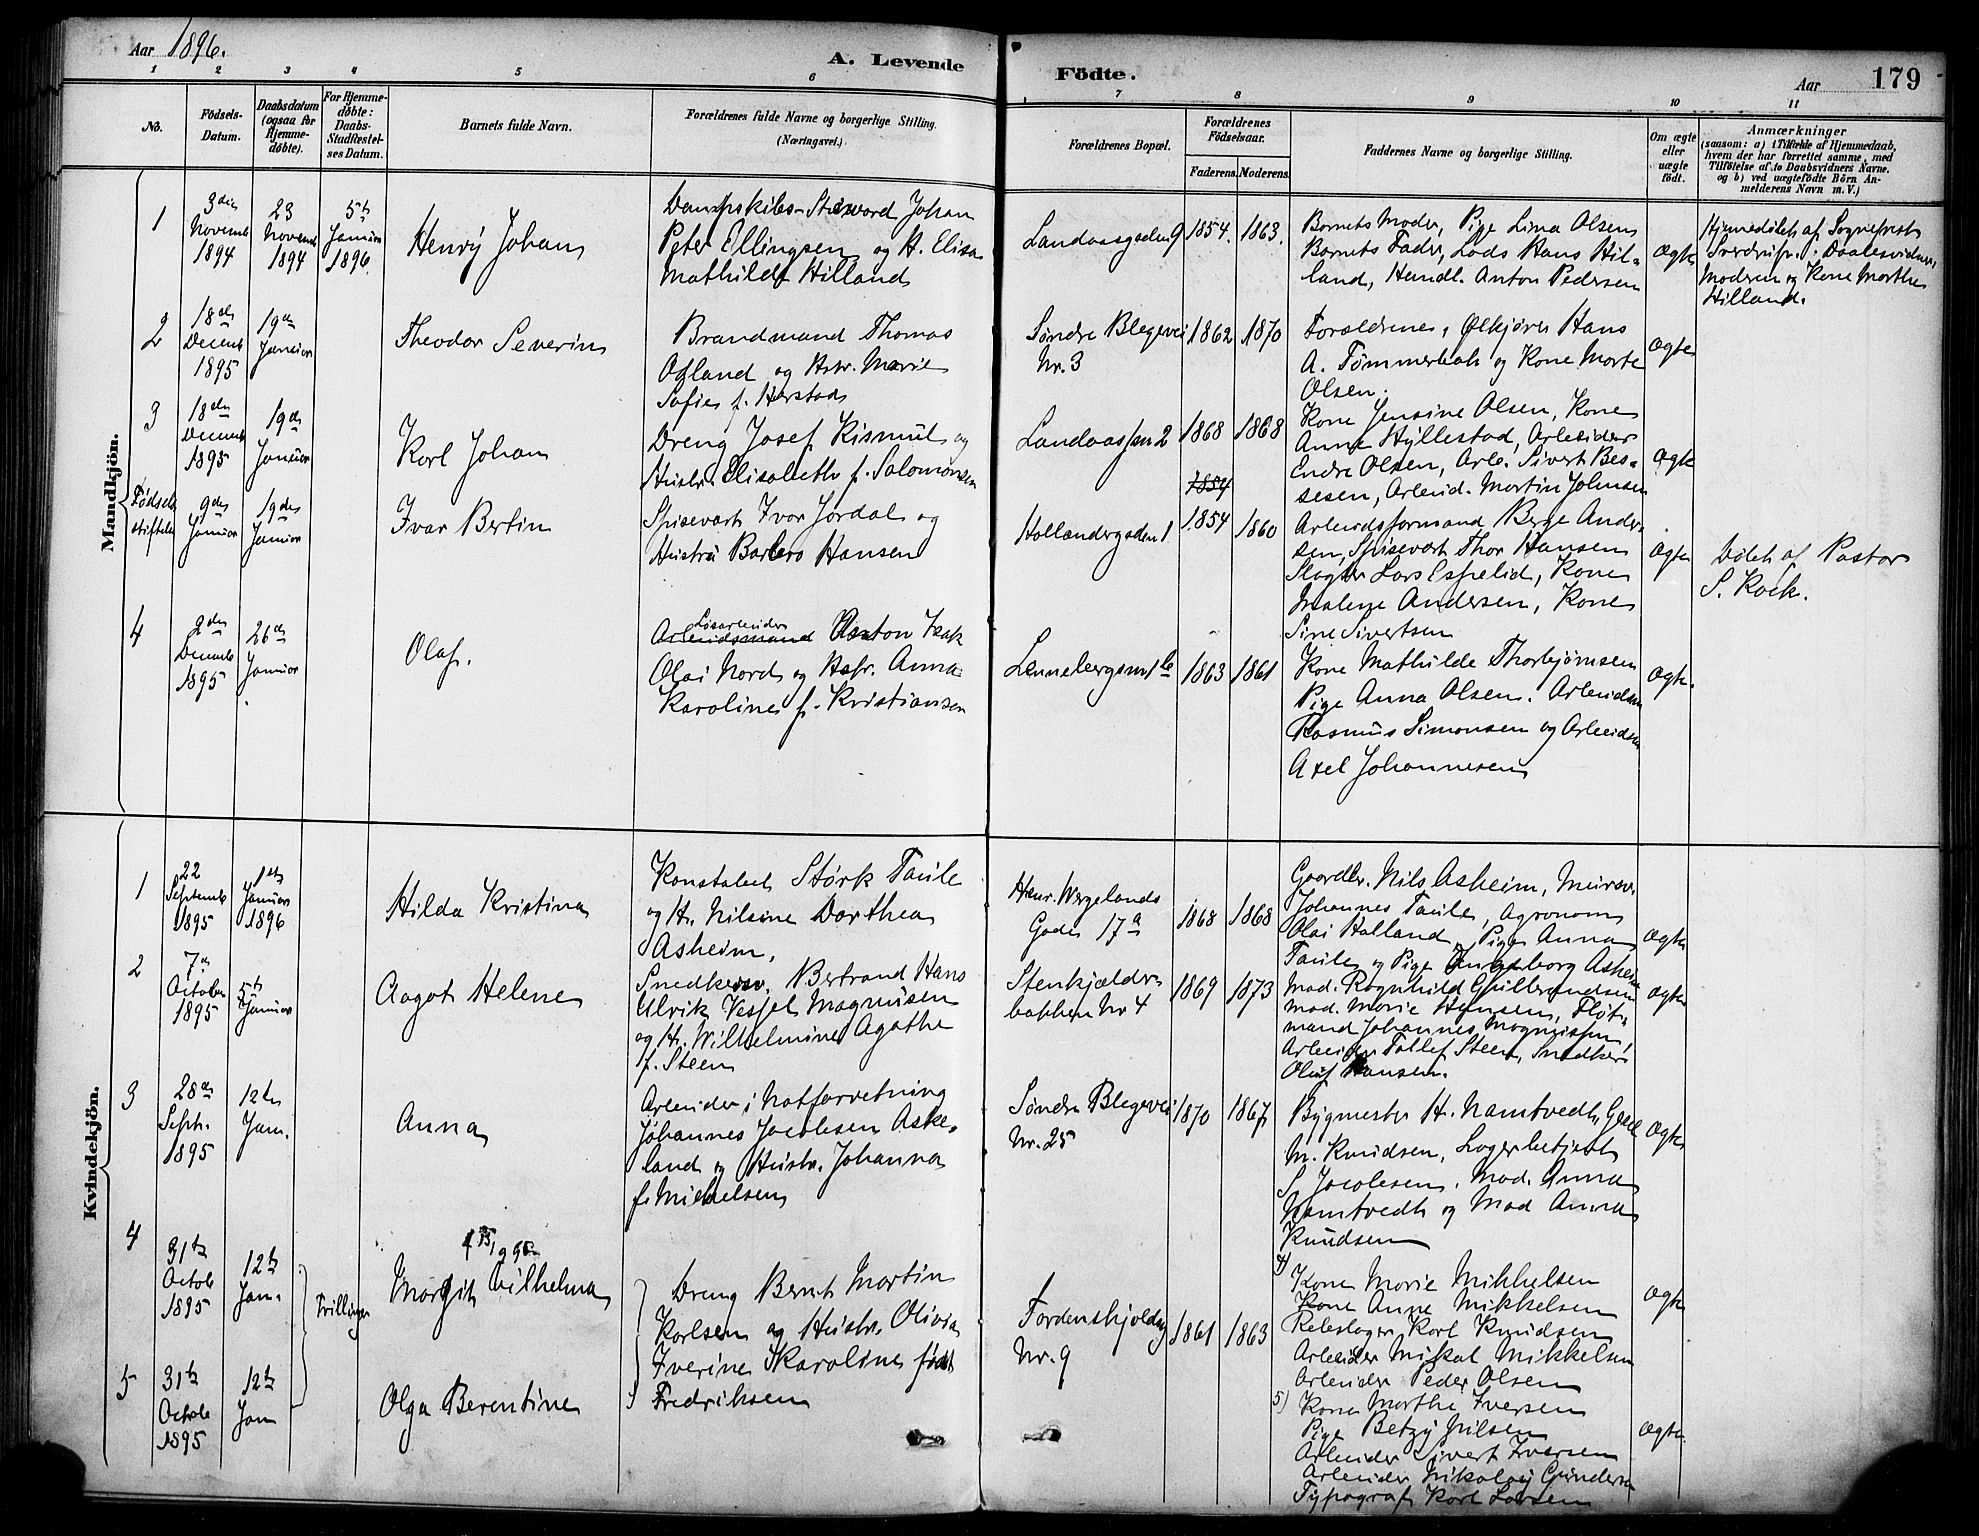 Aar 1896.
A. Levende
Fødte.
Aar
179
1 2 3 4 5 6 7 8 9 10 11
No.
Fødsels-
Datum.
Daabsdatum
(ogsaa for
Hjemme-
døbte).
For Hjemme-
døbte:
Daabs-
Stadfæstel-
ses Datum.
Barnets fulde Navn.
Forældrenes fulde Navne og borgerlige Stilling.
(Næringsvei.)
Forældrenes Bopæl.
Forældrenes
Fødselsaar.
Faderens. Moderens.
Faddernes Navne og borgerlige Stilling.
Om ægte
eller
uægte
født.
Anmærkninger
(saasom: a) i Tilfælde af Hjemmedaab,
hvem der har forrettet samme, med
Tilføielse af to Daabsvidners Navne.
og b) ved uægtefødte Børn An-
melderens Navn m. V.)
Mandkjön.
1
3die
Novemb
1894
23
Novemb
1894
5te
Januar
1896
Henry Johan
Dampskibs-Steward Johan
Peter Ellingsen og H. Elisa
Mathilde Hilland
Landaasgaden 9
1854. 1863.
Barnets Moder, Pige Lina Olsen
Barnets Fader, Lods Hans Hil-
land, Handl. Anton Pedersen
Ægte
Hjemmedøbt af Sogneprest
Sverdrup. Daabsvidner,
Moderen og Kone Marthe
Hilland.
2
18de
Decemb
1895
19de
Januar
Theodor Severin
Brandmand Thomas
Ogland og Hstr. Marie
Sofie f. Harstad
Søndre Blegevei
Nr. 3
1862 1870
Forældrene, Ølkjører Hans
A. Tømmerbak og Kone Marte
Olsen.
Ægte
3
18de
Decemb
1895
19de
Januar
Karl Johan
Dreng Josef Kismul og
Hustr. Elisabeth f. Salomonsen
Landaassm 2
1868 1868
Kone Jensine Olsen, Kone
Anne Hyllestad, Arbeider
Endre Olsen, Arb. Sivert Bes-
sesen, Arbeid. Martin Johnsen
Ægte
Fødsels
stiftels
9de
Januar
19de
Januar
Ivar Bertin
Spisevært Ivar Jordal og
Hustru Barbro Hansen
Hollandergaden 1
1854
1854 1860
Arbeidsformand Berge Ander-
sen, Spisevært Thor Hansen
Slagter Lars Espelid, Kone
Malene Andersen, Kone
Sine Sivertsen
Ægte
Døbt af Pastor
S. Koek.
4
2den
Decemb
1895
26de
Januar
Olaf.
Løsarbeider
Arbeidsmand Anton Isak
Olai Nord og Hstr. Anna
Karoline f. Kristiansen
Lennebergsm 1b
1863 1861
Kone Mathilde Thorbjørnsen
Pige Anna Olsen. Arbeider
Rasmus Simonsen og Arbeider
Axel Johannesen
Ægte.
Kvindekjön.
1
22
Septemb
1895
1ste
Januar
1896
Hilda Kristina
Konstabel Størk Taule
og H. Nilsine Dorthea
Asheim,
Henr. Wergelands
Gade 17a
1868 1868
Gaardbr. Nils Asheim, Murer
Johannes Taule, Agronom
Olai Halland, Pige Anna
Taule og Pige Ingeborg Asheim
Ægte
2
7de
October
1895
5te
Januar
Aagot Helene
Snedkersv. Bertrand Hans
Ulvik Vessel Magnusen
og H. Wilhelmine Agathe
f. Steen
Stenkjælder
bakken Nr 4
1869 1873
Mad. Ragnhild Gulbrandsen
Mad. Marie Hansen, Fløt-
mand Johannes Magnussen,
Arbeider Tollef Steen, Snedker
Oluf Hansen.
Ægte
3
28de
Septb.
1895
12te
Jan.
Anna
Arbeider i Natforretning
Johannes Jacobsen Aske-
land og Hustr. Johanna
f. Michelsen
Søndre Blegevei
Nr. 25
1870 1867
Bygmester H. Namtvedt,
M. Knudsen, Lagerbetjent
S. Jacobsen. Mad. Anna
Namtvedt og Mad Anna
Knudsen
Ægte
4
31te
Octob
1895
12te
Jan.
Tvillinger
Margit Vilhelma
Dreng Bernt Martin
Karlsen og Hustr. Olivia
Iverine Karoline født
Fredriksen
Tordenskjoldsg
Nr. 9
1861 1863
4) Kone Marie Mikkelsen
Kone Anne Mikkelsen
Rebslager Karl Knudsen
Arbeider Mikal Mikkelsen
Arbeider Peder Olsen
Ægte
5
31te
Octob
1895
12te
Jan
Olga Berentine
5) Kone Marthe Iversen
Pige Betzy Nilsen
Arbeider Sivert Iversen
Arbeider Nikolay Gundersen
Typograf Karl Larsen
Ægte.